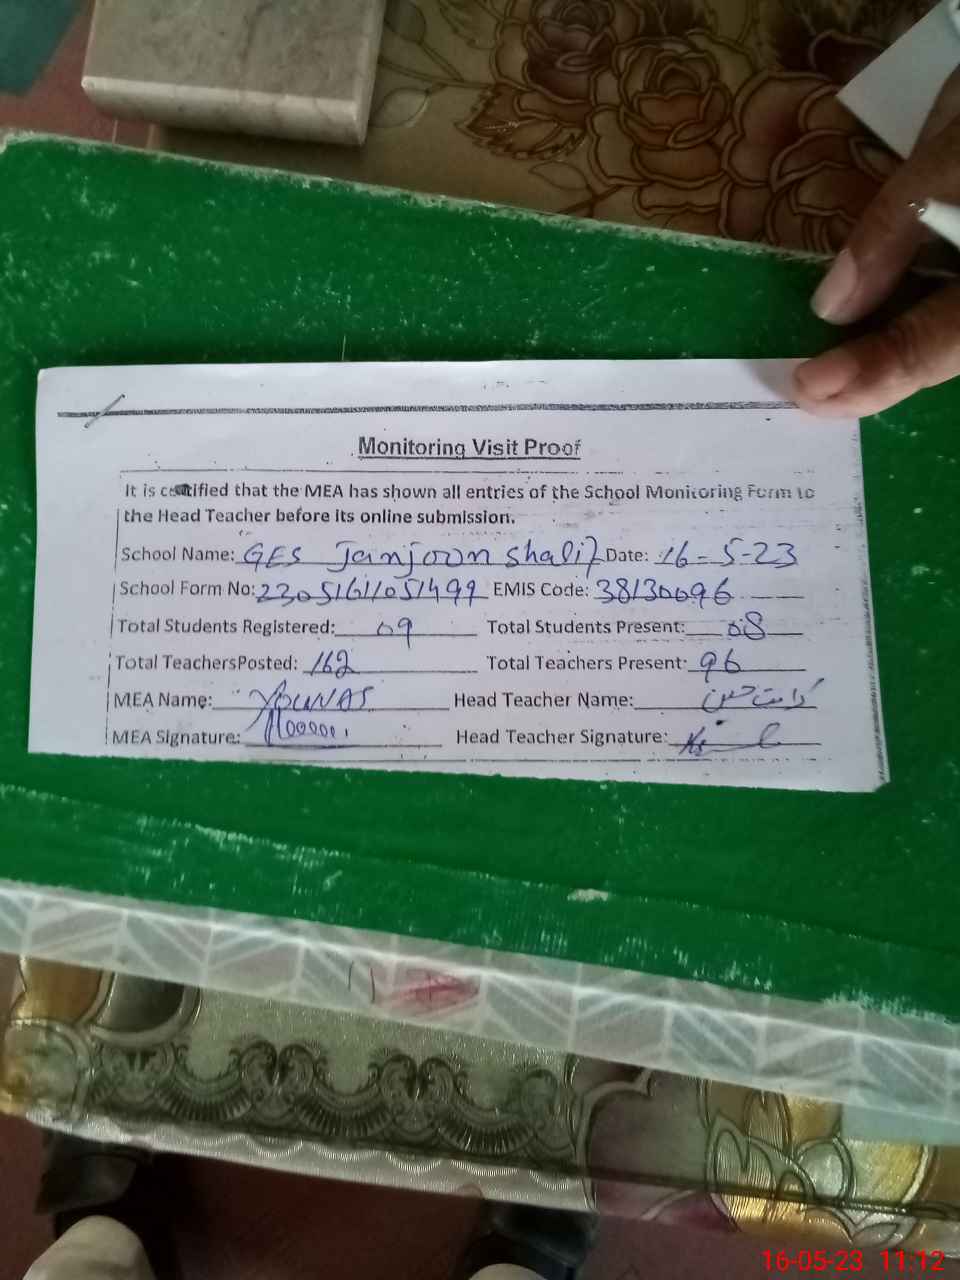 Monitoring Visit Proof
It is certified that the MEA has shown all entries of the School Monitoring Form to
the Head Teacher before its online submission.
School Name: GES Janjoon Shalif Date: 16-5-23
School Form No: 2305161105149 EMIS Code: 38130096
Total Students Registered: 09 Total Students Present: 08
Total TeachersPosted: 162 Total Teachers Present: 96
MEA Name: YOUNAS Head Teacher Name: کرامت حسین
MEA Signature: Head Teacher Signature:
16-05-23 11:12